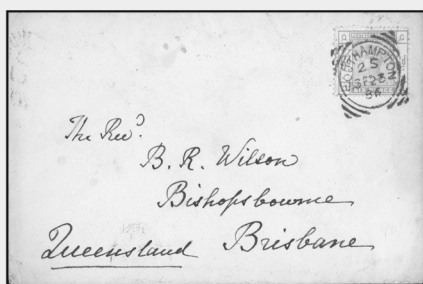 NORTHAMPTON
25
SP 23
86
The Revd.
B. R. Wilson
Bishopsbourne
Queensland Brisbane